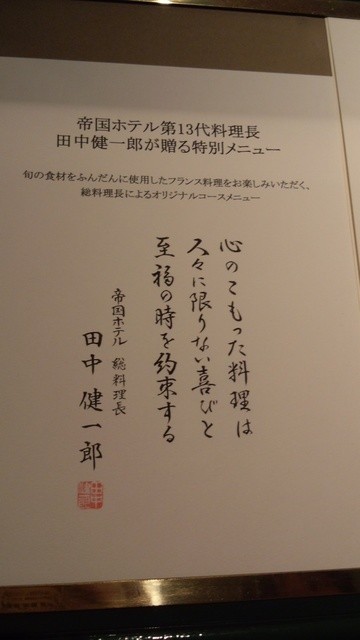 帝国ホテル第13代料理長
田中健一郎が贈る特別メニュー
旬の食材をふんだんに使用したフランス料理をお楽しみいただく、
総料理長によるオリジナルコースメニュー
心のこもった料理は
人々に限りない喜びと
至福の時を約束する
帝国ホテル 総料理長
田中健一郎